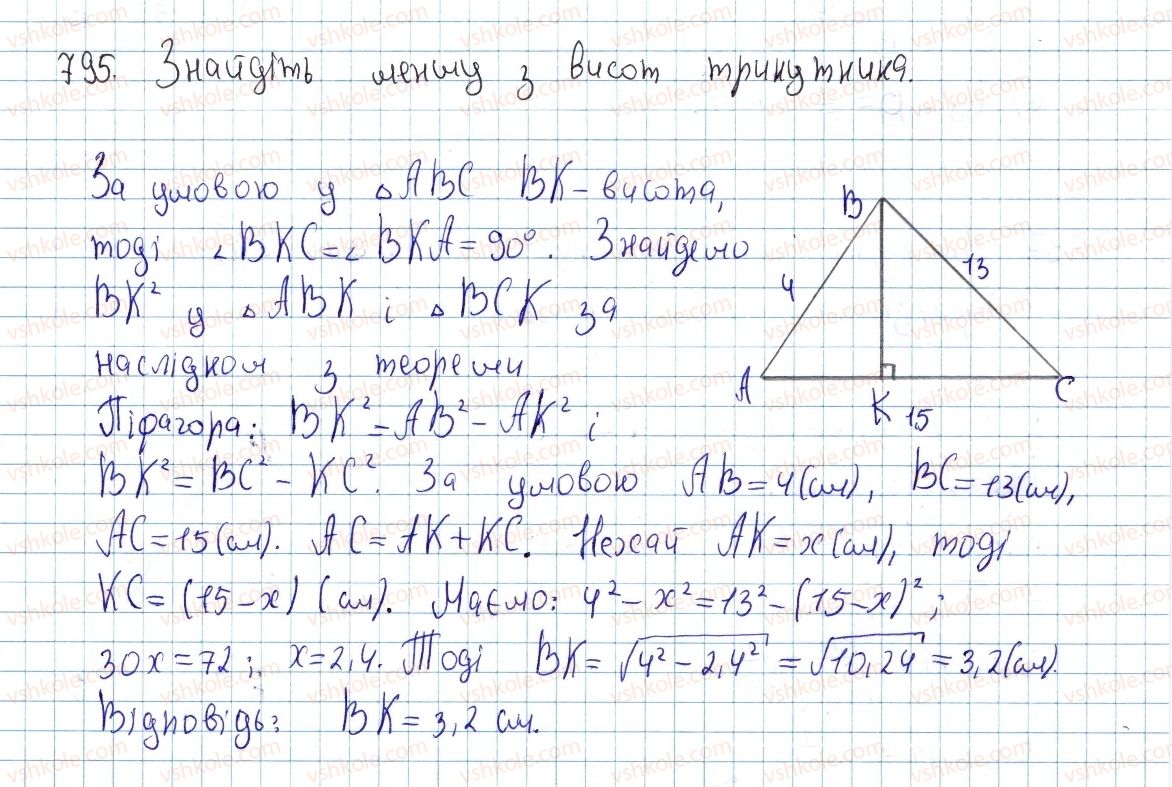 795. Знайдіть меншу з висот трикутника.
За умовою у △ABC BK – висота,
тоді ∠BKC=∠BKA=90°. Знайдемо
BK² у △ABK і △BCK за
наслідком з теореми
Піфагора: BK²=AB²–AK² і
BK²=BC²–KC². За умовою AB=4(см), BC=13(см),
AC=15(см). AC=AK+KC. Нехай AK=x(см), тоді
KC=(15–x) (см). Маємо: 4²–x²=13²–(15–x)²;
30x=72; x=2,4. Тоді BK=√4²–2,4²=√10,24=3,2(см).
Відповідь: BK=3,2 см.
B
4
13
A
K 15
C
vshkole.com